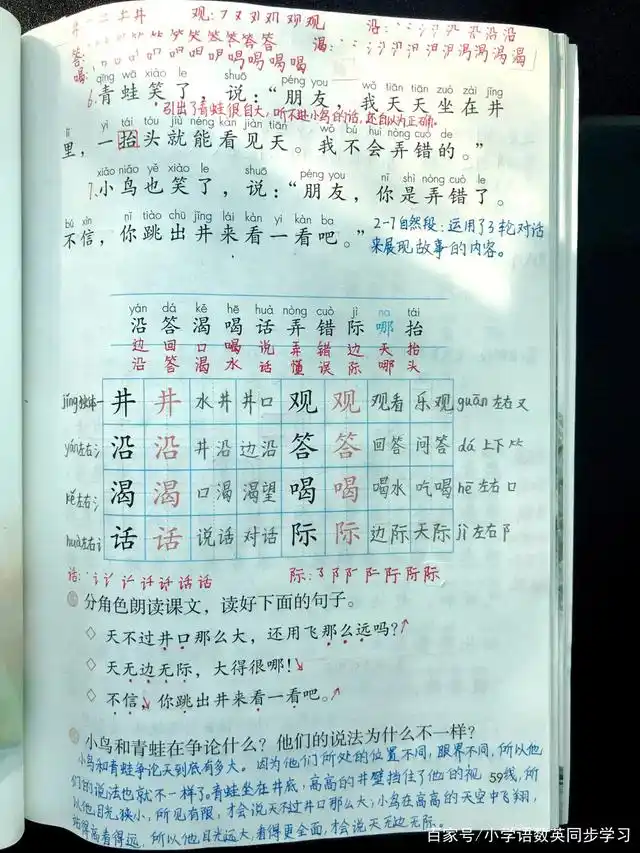 井 一 二 キ 井 观: フ 又 刈 观 观 沿: 沿 沿 沿
答: 答 答 答 渴: 渴 渴 渴 渴
喝: 喝 喝 喝 喝
qīng wā xiào le shuō péng you wǒ tiān tiān zuò zài jǐng
6.青蛙笑了，说：“朋友，我天天坐在井
引出了青蛙很自大，听不进小鸟的话，还自以为正确。
lǐ yì tái tóu jiù néng kàn jiàn tiān wǒ bú huì nòng cuò de
里，一抬头就能看见天。我不会弄错的。”
xiǎo niǎo yě xiào le shuō péng you nǐ shì nòng cuò le
7.小鸟也笑了，说：“朋友，你是弄错了。
bú xìn nǐ tiào chū jǐng lái kàn yi kàn ba
不信，你跳出井来看一看吧。”
2-7自然段：运用了3轮对话
来展现故事的内容。
yán dá kě hē huà nòng cuò jì na tái
沿 答 渴 喝 话 弄 错 际 哪 抬
边 回 口 喝 说 弄 错 边 天 抬
沿 答 渴 水 话 懂 误 际 哪 头
jǐng独体一 井 井 水井 井口 观 观 观看 乐观 guān 左右 又
yán左右氵 沿 沿 井沿 边沿 答 答 回答 问答 dá 上下 ⺮
kě左右氵 渴 渴 口渴 渴望 喝 喝 喝水 吃喝 hē 左右 口
huà左右讠 话 话 说话 对话 际 际 边际 天际 jì 左右 阝
话: 丶 讠 话 话 话 际: 阝 际 际 际
分角色朗读课文，读好下面的句子。
◇ 天不过井口那么大，还用飞那么远吗？↗
◇ 天无边无际，大得很哪！↘
◇ 不信，↘你跳出井来看一看吧。↗
小鸟和青蛙在争论什么？他们的说法为什么不一样？
小鸟和青蛙争论天到底有多大。因为他们所处的位置不同，眼界不同，所以他
们的说法也就不一样了。青蛙坐在井底，高高的井壁挡住了他的视线，所
59
以他目光狭小，所见有限，才会说天不过井口那么大；小鸟在高高的天空中飞翔，
站得高看得远，所以他目光远大，看得更全面，才会说天无边无际。
百家号/小学语数英同步学习